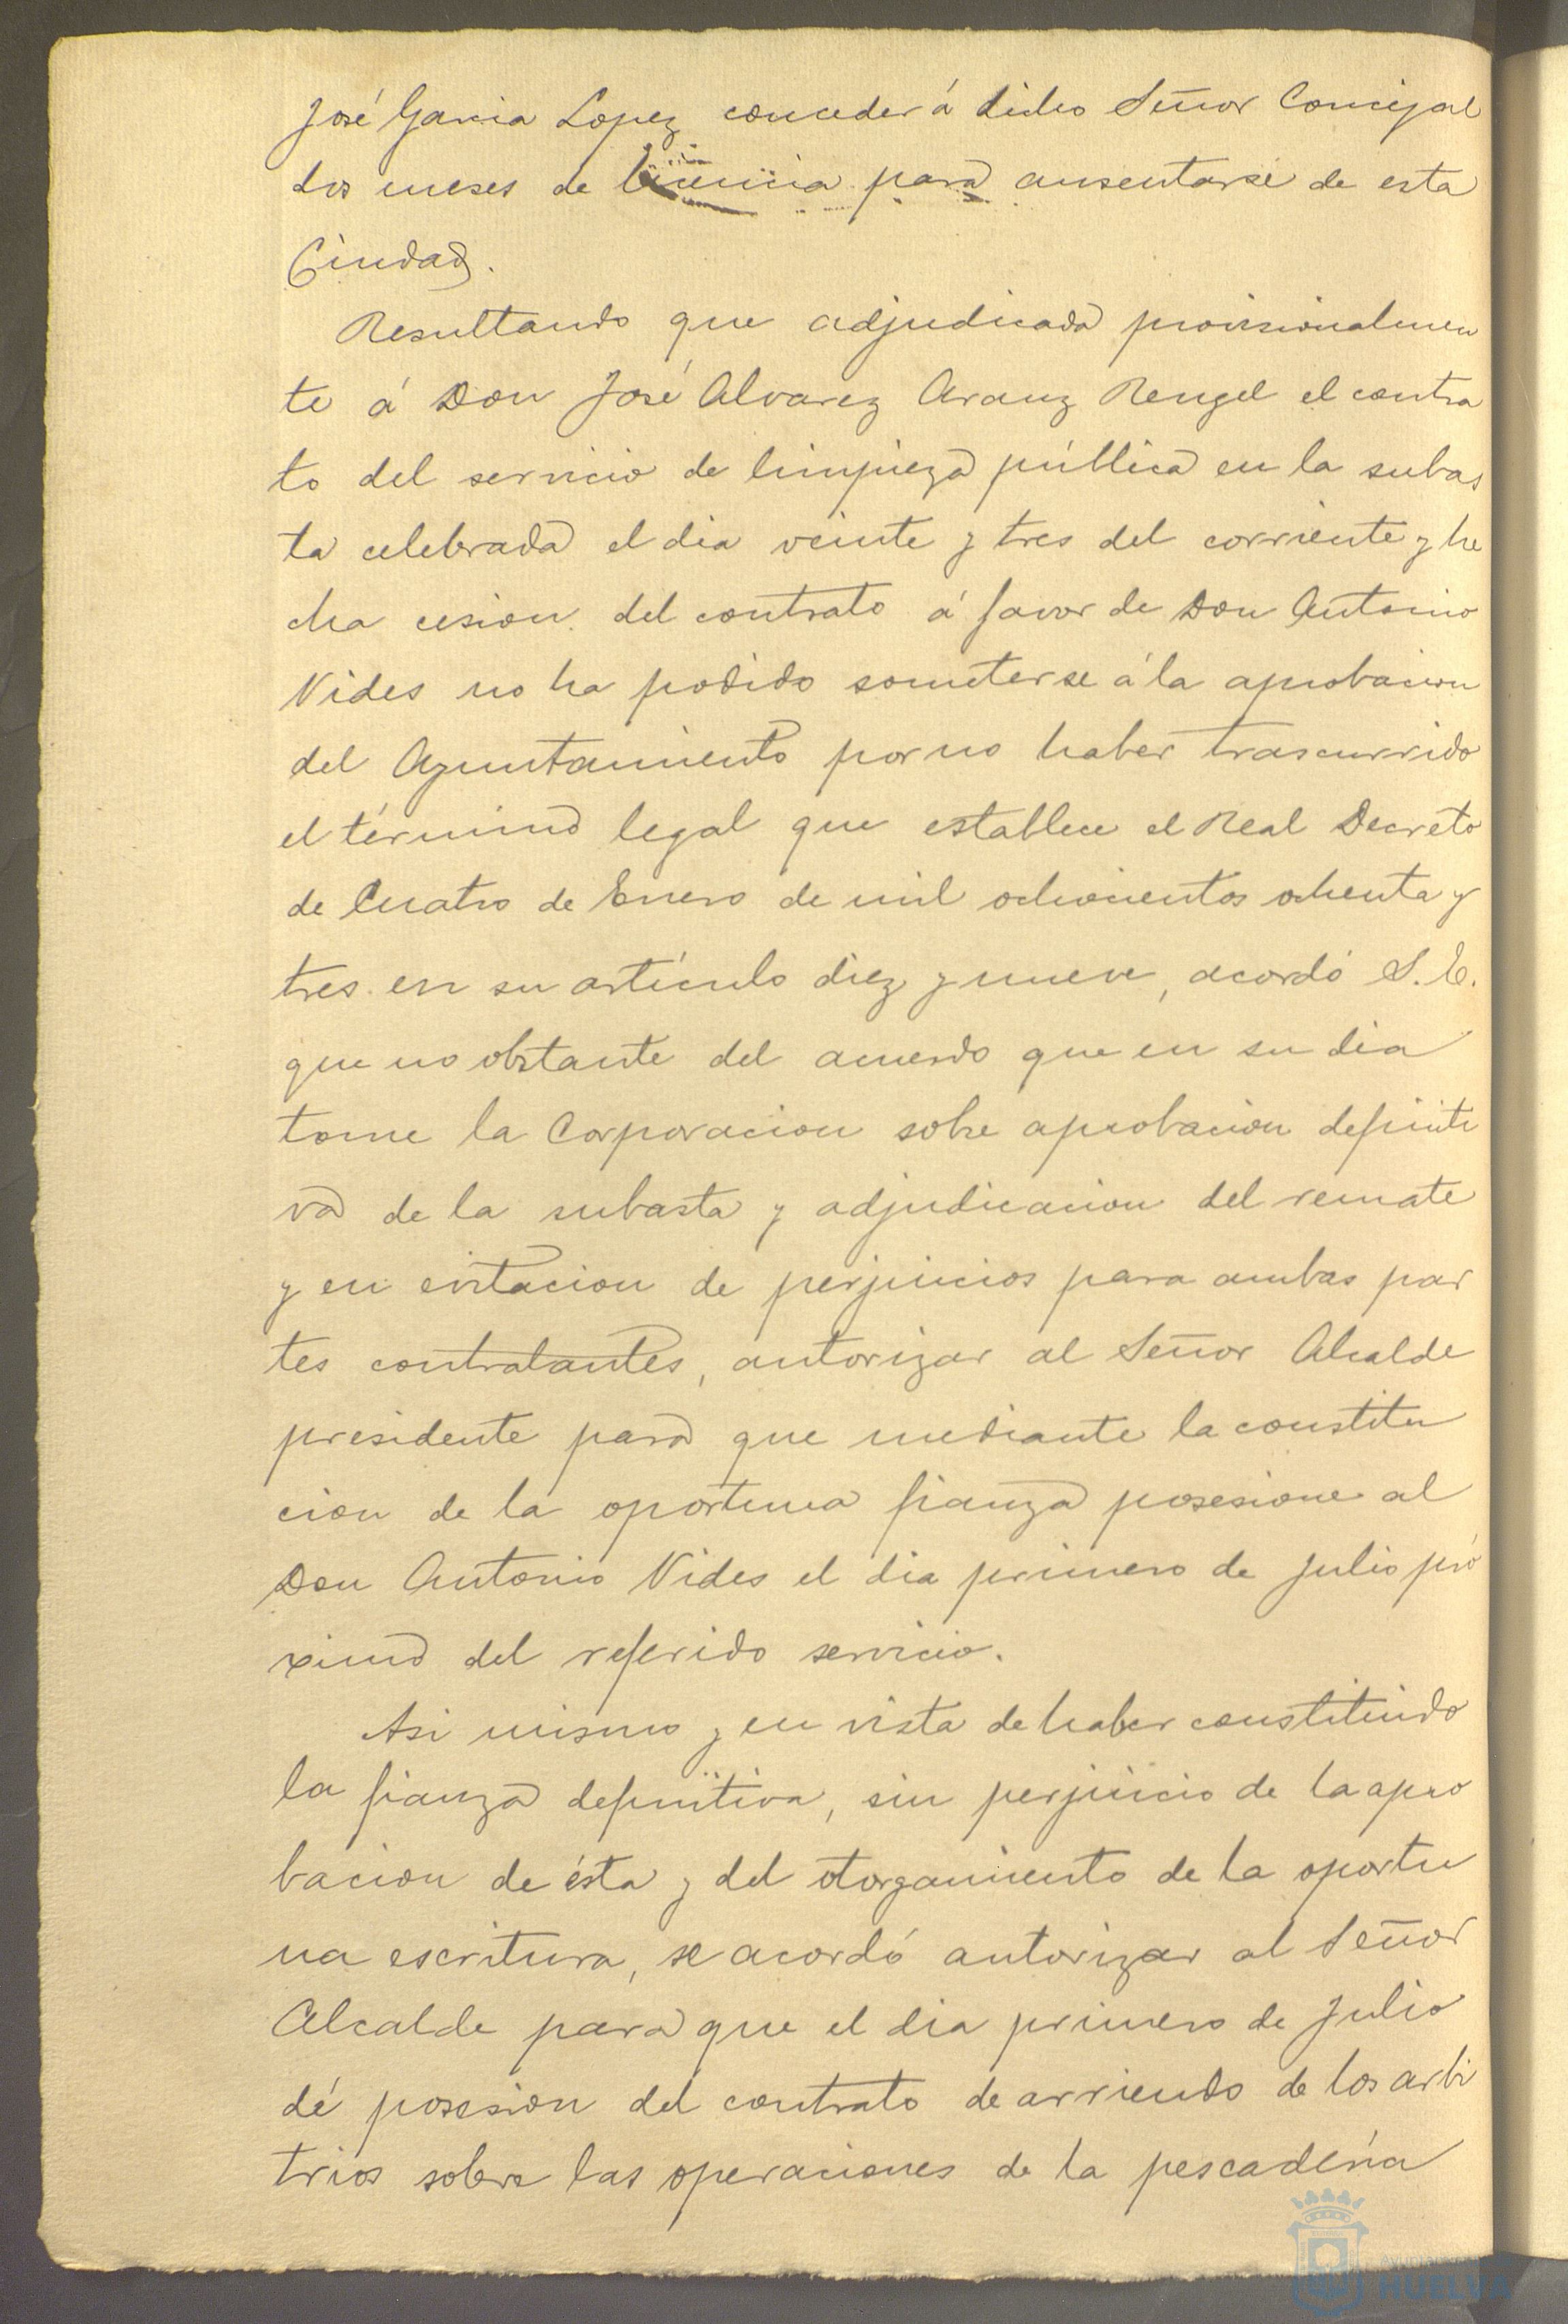 José Garcia Lopez conceder á dicho Señor Concejal
dos meses de licencia para ausentarse de esta
Ciudad.
Resultando que adjudicada provisionalmen
te á Don José Alvarez Aranz Rengel el contra
to del servicio de limpieza pública en la subas
ta celebrada el dia veinte y tres del corriente y he
cha cesion del contrato á favor de Don Antonio
Vides no ha podido someterse á la aprobacion
del Ayuntamiento por no haber trascurrido
el término legal que establece el Real Decreto
de Cuatro de Enero de mil ochocientos ochenta y
tres en su artículo diez y nueve, acordó S. E.
que no obstante del acuerdo que en su dia
tome la Corporacion sobre aprobacion definiti
va de la subasta y adjudicacion del remate
y en evitacion de perjuicios para ambas par
tes contratantes, autorizar al Señor Alcalde
presidente para que mediante la constitu
cion de la oportuna fianza posesione al
Don Antonio Vides el dia primero de Julio pró
ximo del referido servicio.
Asi mismo y en vista de haber constituido
la fianza definitiva, sin perjuicio de la apro
bacion de ésta y del otorgamiento de la oportu
na escritura, se acordó autorizar al Señor
Alcalde para que el dia primero de Julio
dé posesion del contrato de arriendo de los arbi
trios sobre las operaciones de la pescadería
HUELVA